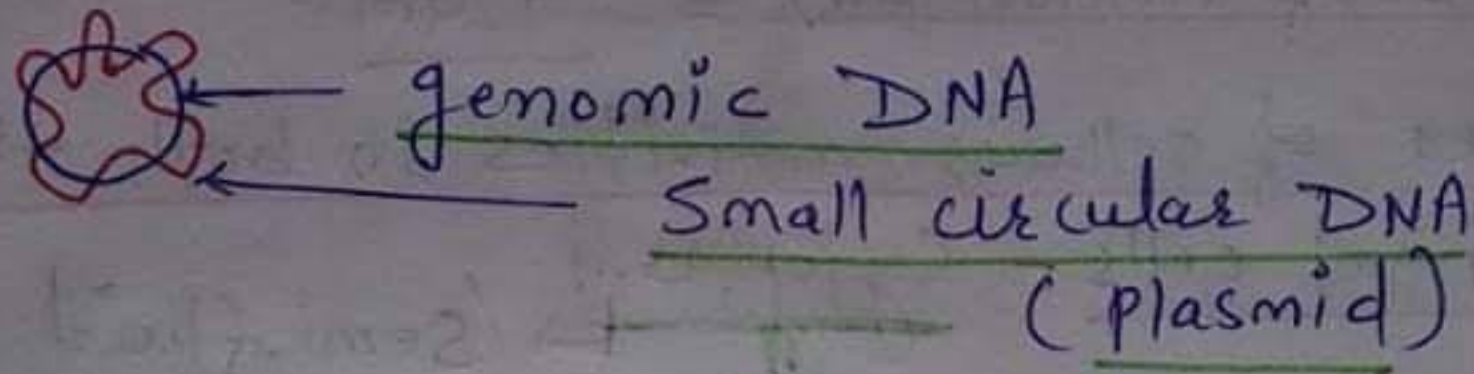 genomic DNA
Small circular DNA
(plasmid)